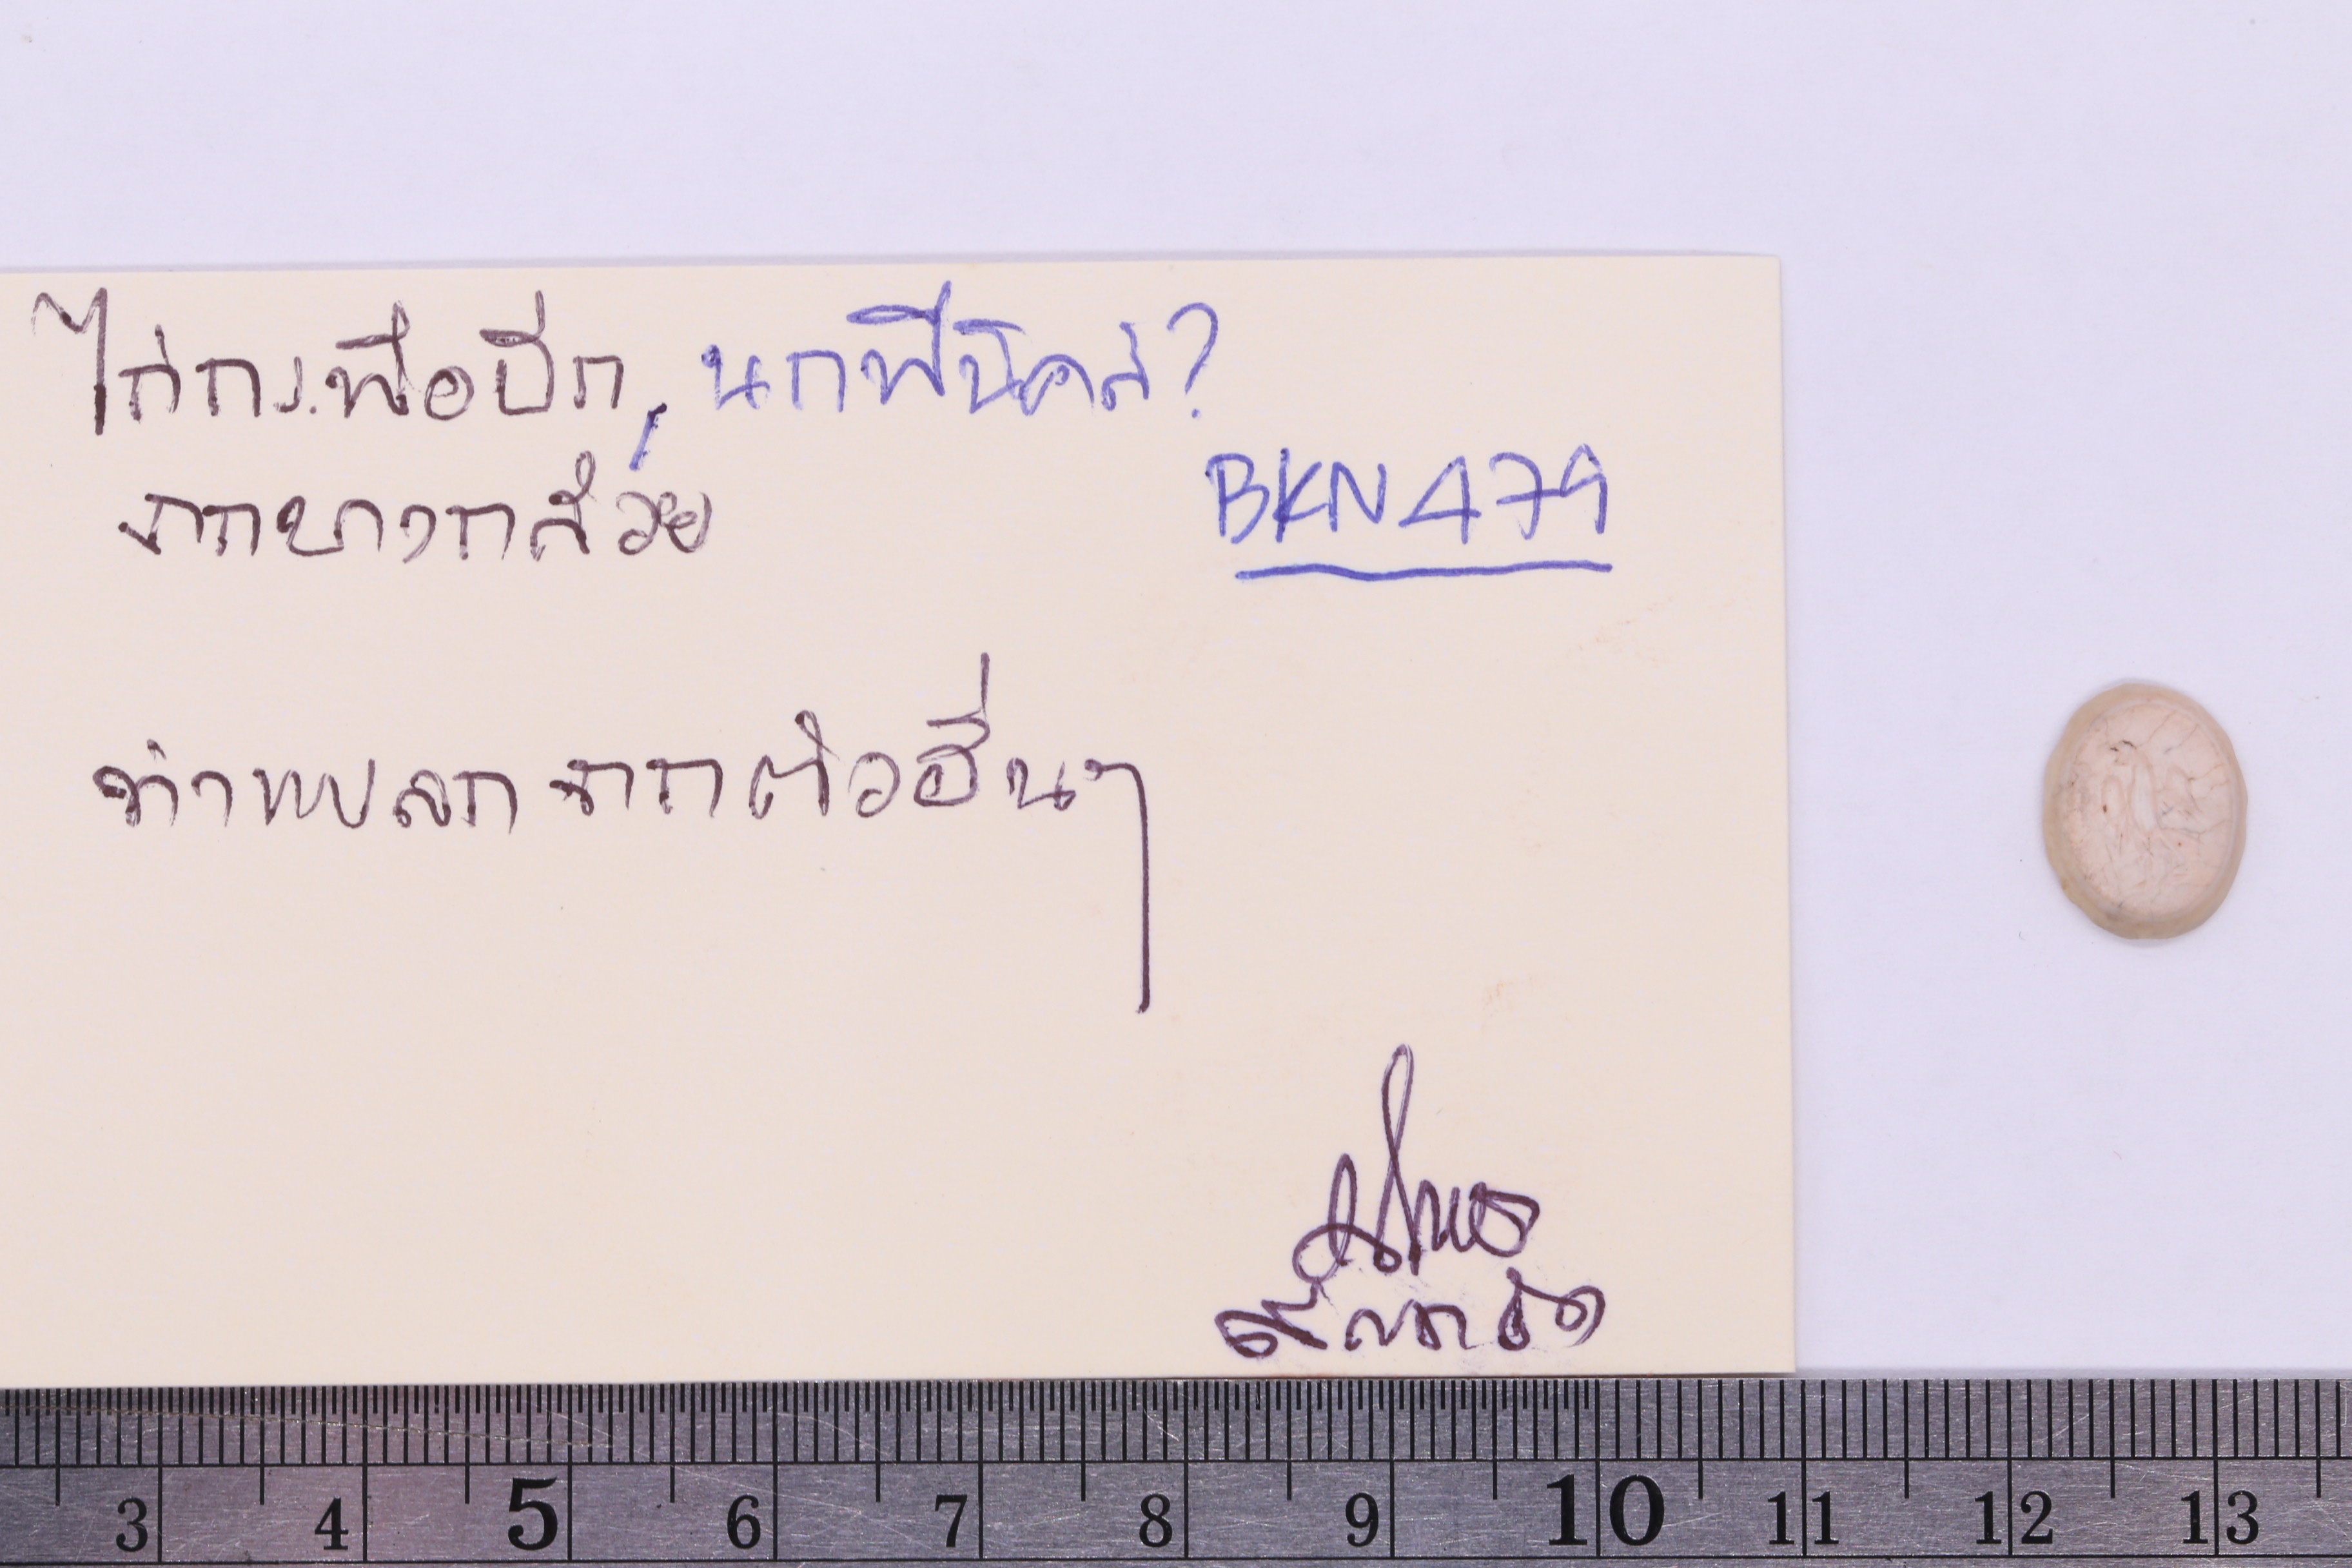 ไก่กระพือปีก, นกฟีนิคส์?
จากบางกล้วย
BKN479
ท่าแปลกจากตัวอื่นๆ
3 4 5 6 7 8 9 10 11 12 13